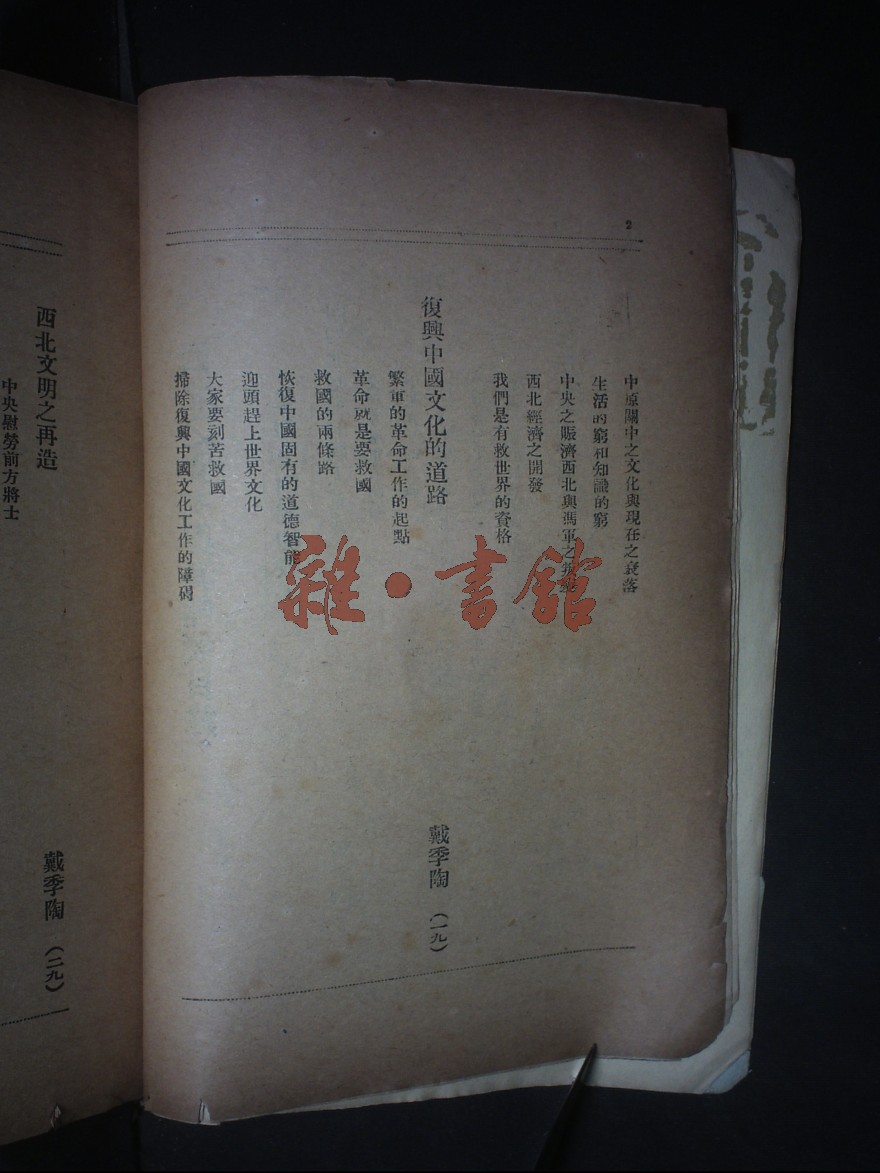 2
中原關中之文化與現在之衰落
生活的窮和知識的窮
中央之賑濟西北與馮軍之
西北經濟之開發
我們是有救世界的資格
復興中國文化的道路 戴季陶 (一九)
繁重的革命工作的起點
革命就是要救國
救國的兩條路
恢復中國固有的道德智能
迎頭趕上世界文化
大家要刻苦救國
掃除復興中國文化工作的障碍
西北文明之再造 戴季陶 (二九)
中央慰勞前方將士
雜·書館